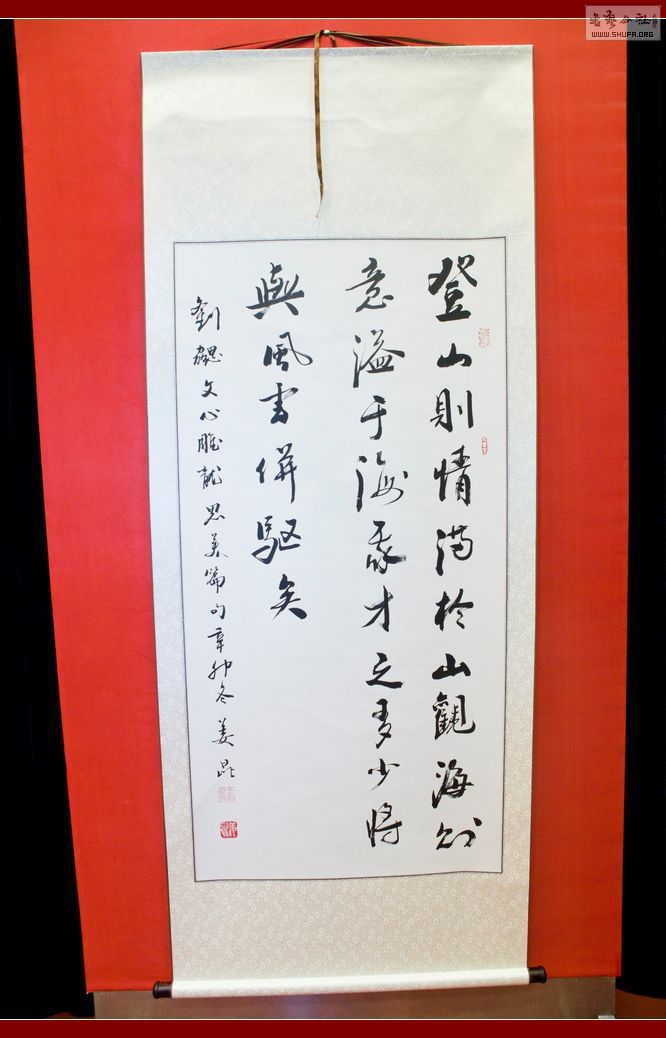 登山則情滿於山觀海則
意溢于海我才之多少將
與風雲併驅矣
劉勰文心雕龍思美篇句辛卯冬姜昆
書藝公社
WWW.SHUFA.ORG